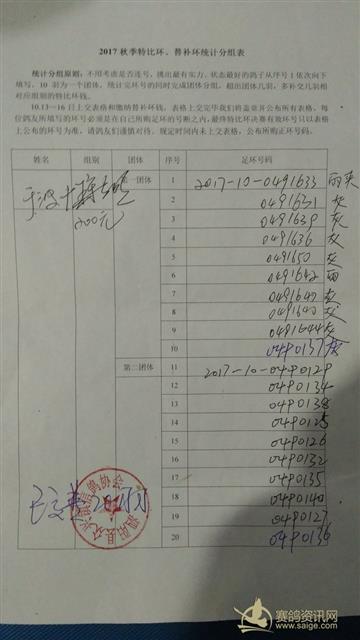 2017 秋季特比环、替补环统计分组表
统计分组原则：不用考虑是否连号，挑出最有实力、状态最好的鸽子从序号 1 依次向下
填写。10 羽为一个团体，统计完环号的同时完成团体分组，超出团体几羽，多补交几羽相
对应组别的特比环钱。
10.13—16 日上交表格和缴纳替补环钱，表格上交完毕我们将盖章并公布所有表格，每
位鸽友所填写的环号必须是在自己所邮足环的号断之内，最终特比环决赛有效环号只以表格
上公布的环号为准，请鸽友们谨慎对待，规定时间内未上交表格，公布所购正环号码。
姓名 组别 团体 序号 足环号码
200元 第一团体 1 2017-10-0491633 雨夹
2 0491631 灰
3 0491639 灰
4 0491636 灰
5 0491650 灰
6 0491642 雨
7 0491647 灰
8 0491640 灰
9 0491644 灰
10 0490137 灰
第二团体 11 2017-10-0490129
12 0490134
13 0490138
14 0490125
15 0490126
16 0490132
17 0490135
18 0490140
19 0490127
20 0490136
已交
赛鸽资讯网
www.saige.com